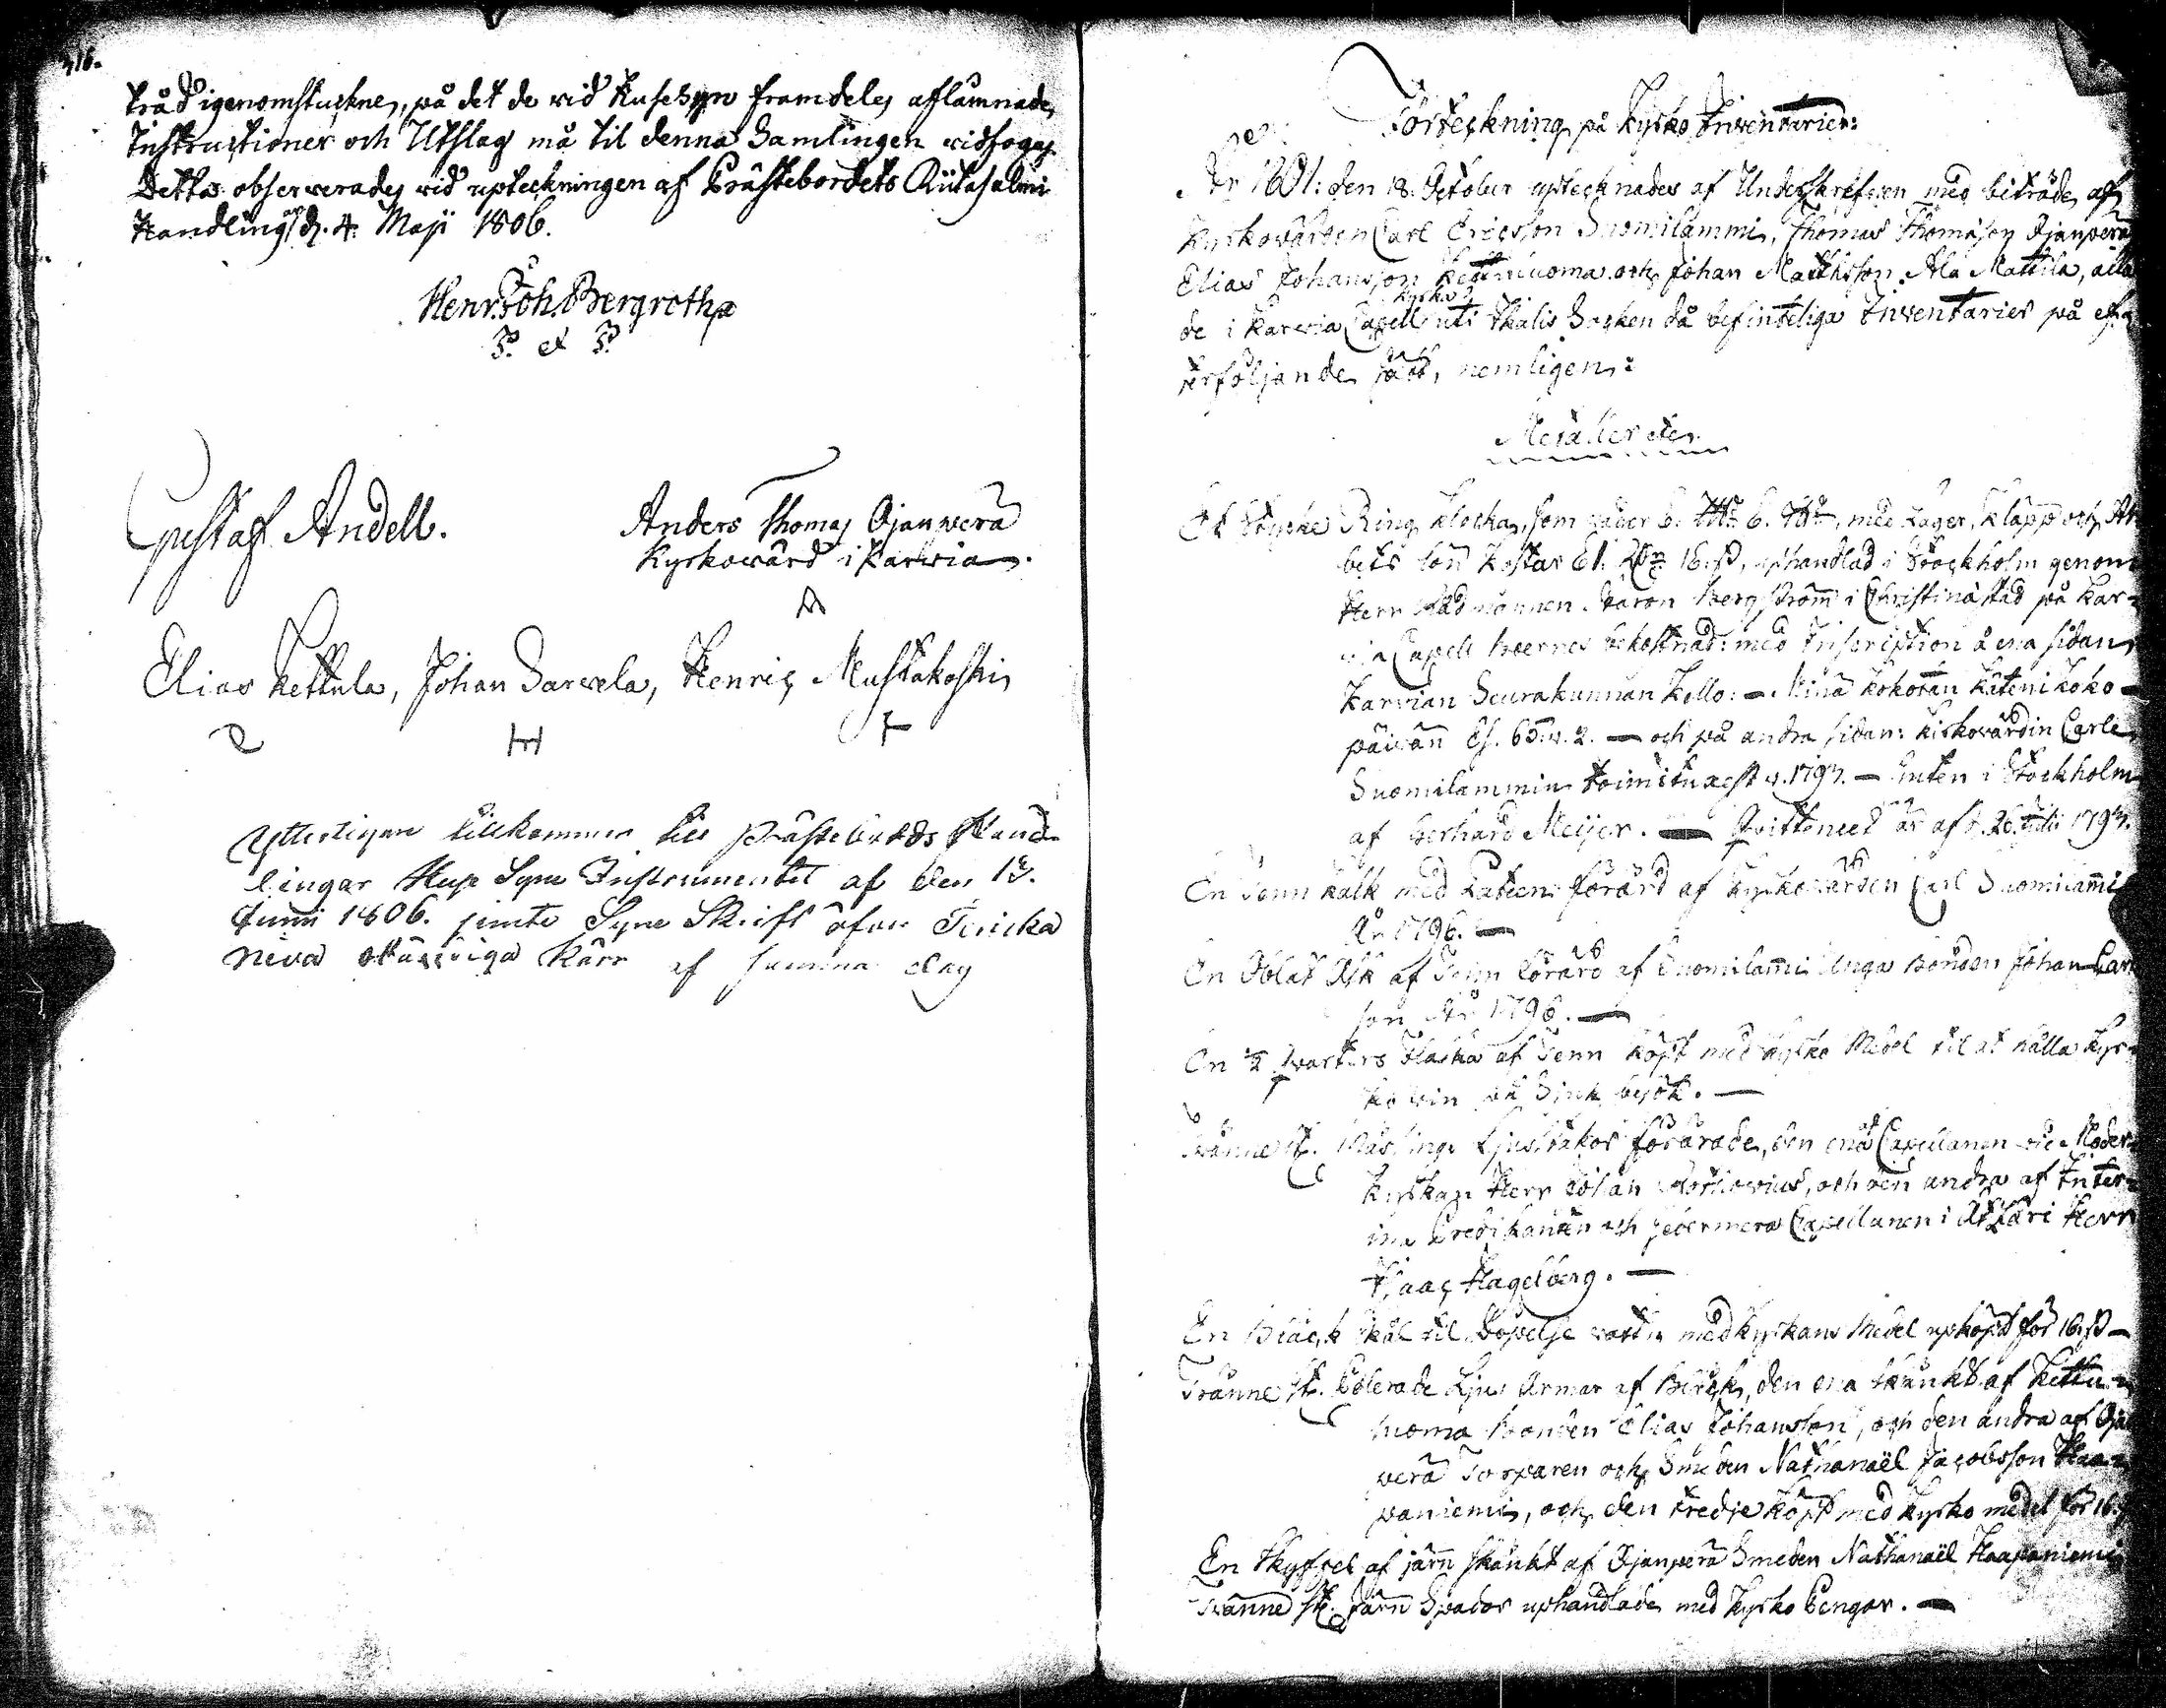 316.
tråd igenomstuckne, på det de vid Husesyn framdeles aflämnade
Instructioner och Utslag må til denna Samlingen vidfogas.
Detta observerades vid upteckningen af Prästebordets Riitasalmi
Handlingar d. 4. Maji 1806.
Henr. Joh. Bergroth
P. et P.
Gustaf Andell.
Anders Thomas Ojanperä
Kyrkovärd i Karvia.
Elias Kettula, Johan Sarvela, Henric Mustakoski
Ytterligare tillkommer till Prästebords Hand-
lingar Huse Syne Instrumentet af den 13.
Junii 1806. jemte Syne Skrift öfver
niva Kärr af samma dag
Förteckning på Kyrko Inventarier:
År 1801: den 18. October uptecknades af Underskrefven med biträde af
Kyrkovärden Carl Ericsson Suomilammi, Thomas Thomason Ojanperä
Elias Johansson Kettuluoma och Johan Matthsson Ala Mattila, alla
de i Karvia Capell Kyrka uti Ikalis Socken då befinteliga Inventarier på ef-
terföljande sätt, nemligen:
Metaller etc.
Et Stycke Ring Klocka, som väger 6. 6. med Lager, Kläpp och Ar-
bets lön kostar 61. 16 s, uphandlad i Stockholm genom
Herr Rådmannen Bergström i Christinæstad på Kar-
via Capell Boernes bekostnad: med Inscription å ena sidan
Karvian Seurakunnan Kello: — Minä kokotan Käteni koko —
päivän Es. 65. v. 2. — och på andra sidan: Kirkovärdin Carle
Suomilammin toimituxest v. 1797. — Guten i Stockholm
af Gerhard Meijer. — Quittencet är af d. 26. Julii 1797.
En Tenn kalk med Paten förärd af Kyrkovärden Carl Suomilammi
År 1796. —
En Oblat Ask af Tenn förärd af Suomilammi Unga Bonden Johan Carl
son År 1796. —
En ½ qvarters Flaska af Tenn köpt med Kyrko Medel til at hålla Kyr-
ko vin på Siuk besök. —
Tvänne st. Mässings Ljusstakar förärade, den ena Capellanen vid Moder-
kyrkan Herr Johan , och den andra af Inter-
ims Predikanten och sedermera Capellanen i Ätsäri Herr
Isaac Hagelberg. —
En Bläck skål til Döpelse vatten med Kyrkans Medel upköpt för 16 s —
Tränne st. Polerade Ljus Armar af Bläck, den ena skänkt af Kettu-
luoma Bonden Elias Johansson, och den andra af Ojan
perä Torparen och Smeden Nathanaël Jacobsson Haa-
paniemi, och den tredje köpt med Kyrko medel för 16 s
En Skyffel af järn skänkt af Ojanperä Smeden Nathanaël Haapaniemi
Tvänne st. Järn Spador uphandlade med Kyrko Pengar. —